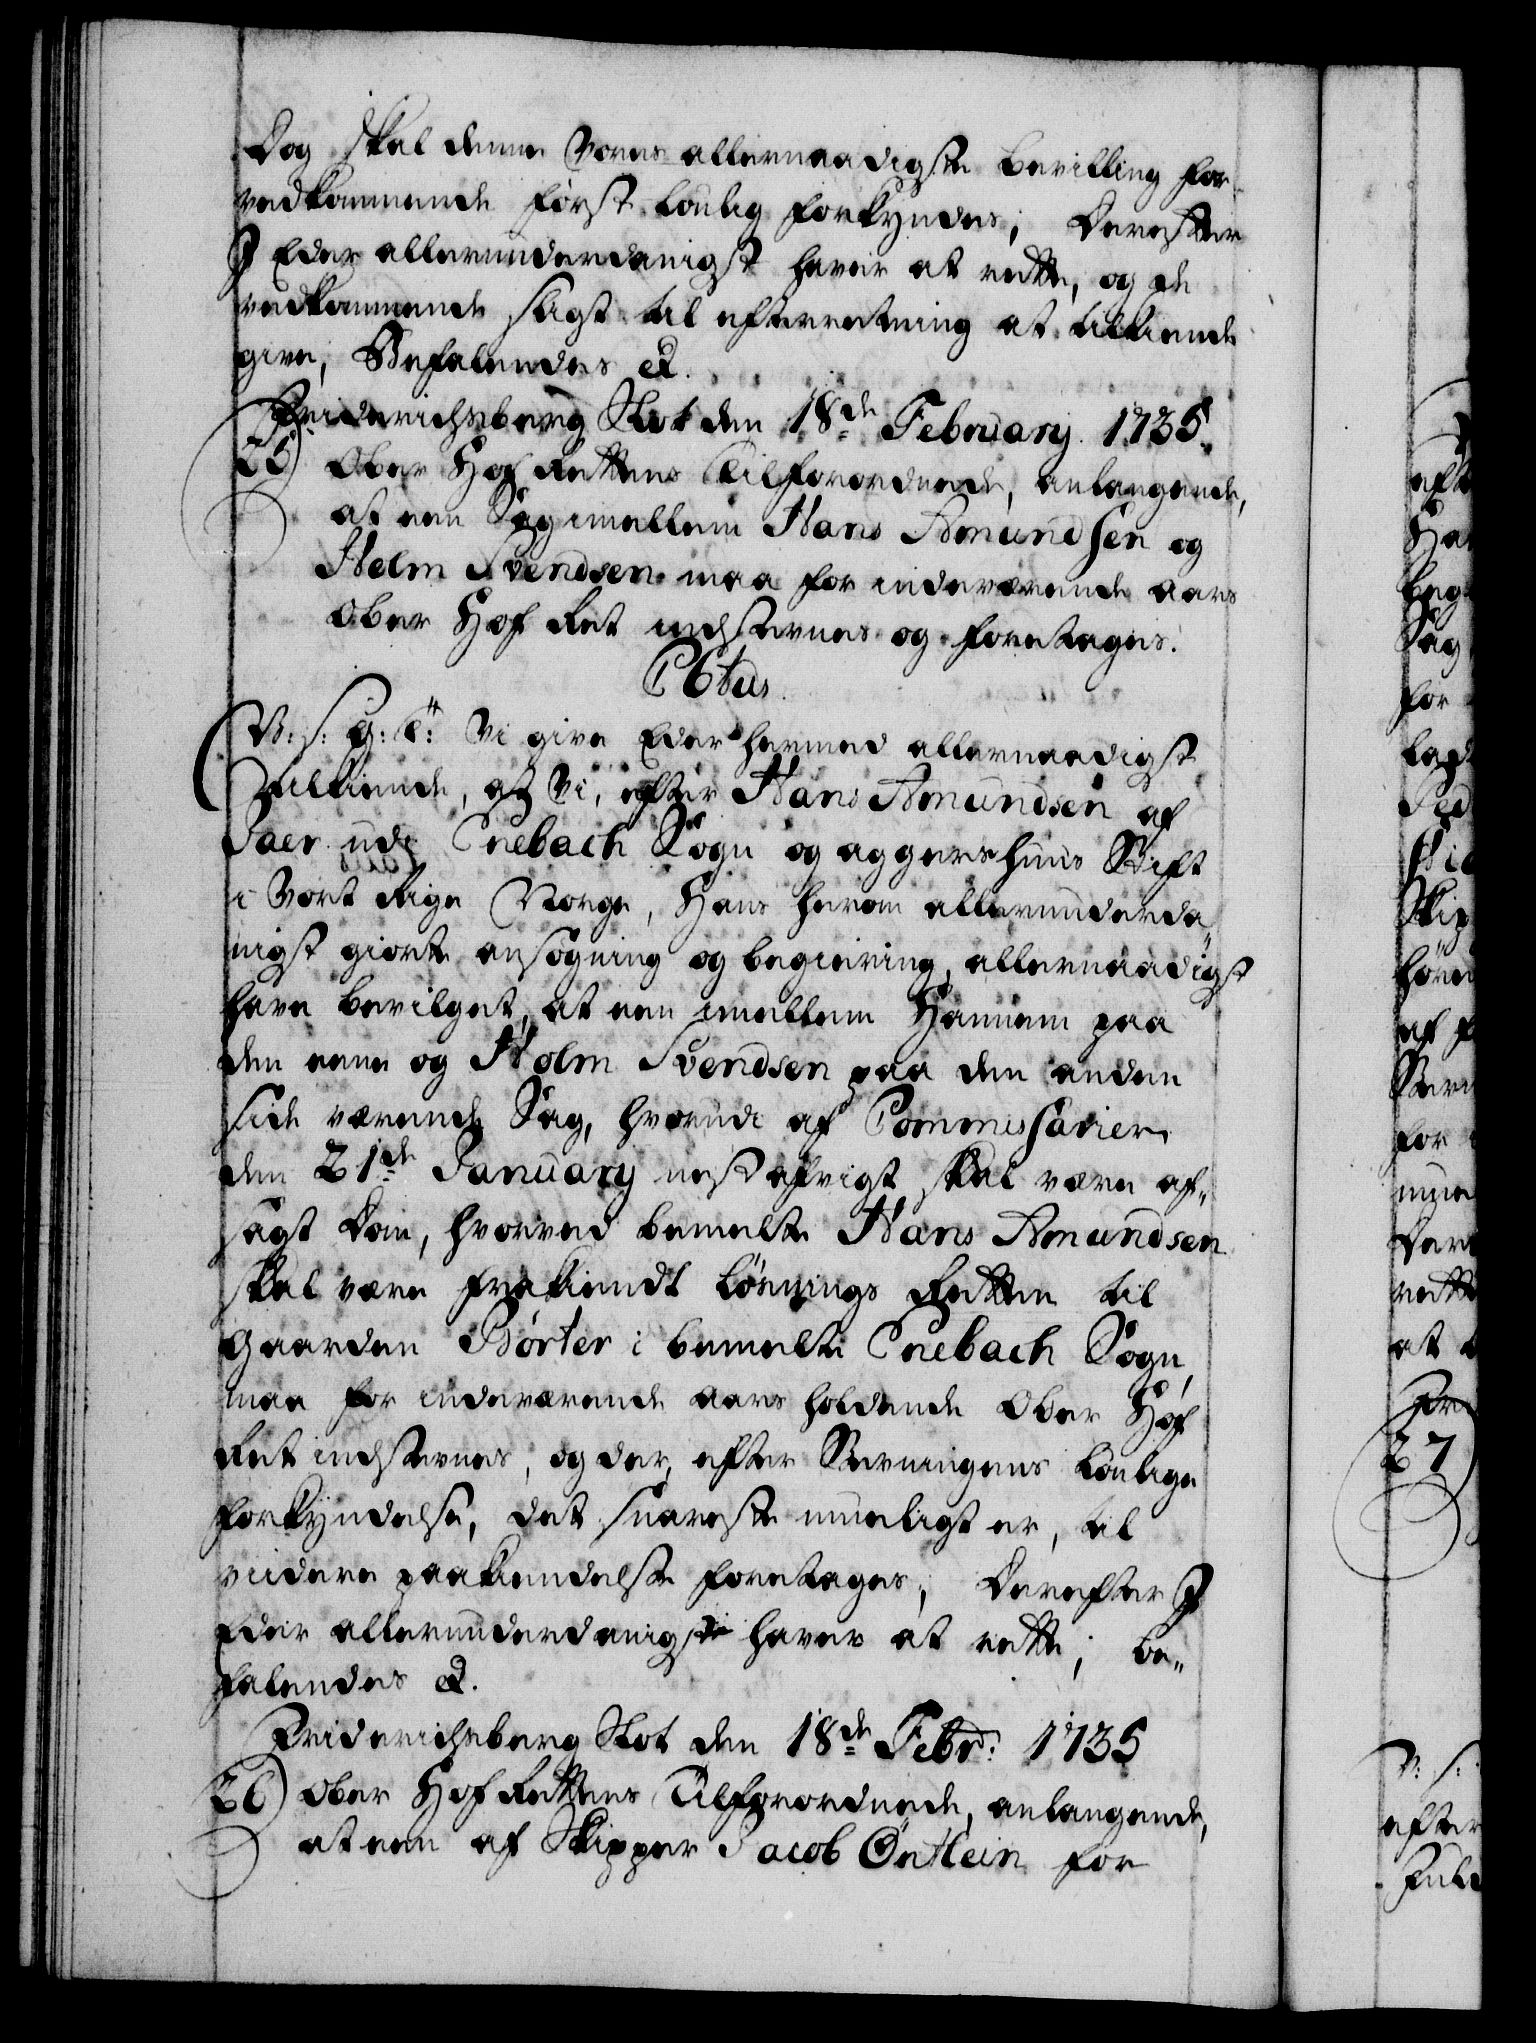 Dog skal denne Vores allernaadigste bevilling for
vedkommende først lovlig forkyndes; Derefter
I Eder allerunderdanigst haver at rette, og de
vedkommende sligt til efterretning at tilkiende
give, Befalendes &.
Friderichsberg Slot den 18de February 1735.
25) Ober Hof Rettens Tilforordnede, anlangende,
at een Sag imellem Hans Amundsen og
Holm Svendsen maa for indeværende aars
Ober Hof Ret indstevnes og foretages.
C 6tus
V: s: G: T: Vi give Eder hermed allernaadigst
Tilkiende, at Vi, efter Hans Amundsen af
Jaer udi Enebach Sogn og aggershuus Stift
i Vort Rige Norge, Hans herom allerunderda
nigst giorte ansøgning og begiering, allernaadigst
have bevilget, at een imellem Hannem paa
den eene og Holm Svendsen paa den anden
side værende Sag, hvorudi af Commissarier
den 21de January nest afvigt skal være af„
sagt Dom, hvorved bemelte Hans Amundsen
skal være frakiendt Løsnings Retten til
Gaarden Børter i bemelte Enebach Sogn,
maa for indeværende aars holdende Ober Hof
Ret indstevnes, og der, efter Stevningens lovlige
forkyndelse, det snareste mueligt er, til
viidere paakiendelse foretages; Derefter I
Eder allerunderdanigst haver at rette; be„
falendes &.
Friderichsberg Slot den 18de Febr: 1735
26) Ober Hof Rettens Tilforordnede, anlangende,
at een af Skipper Jacob for